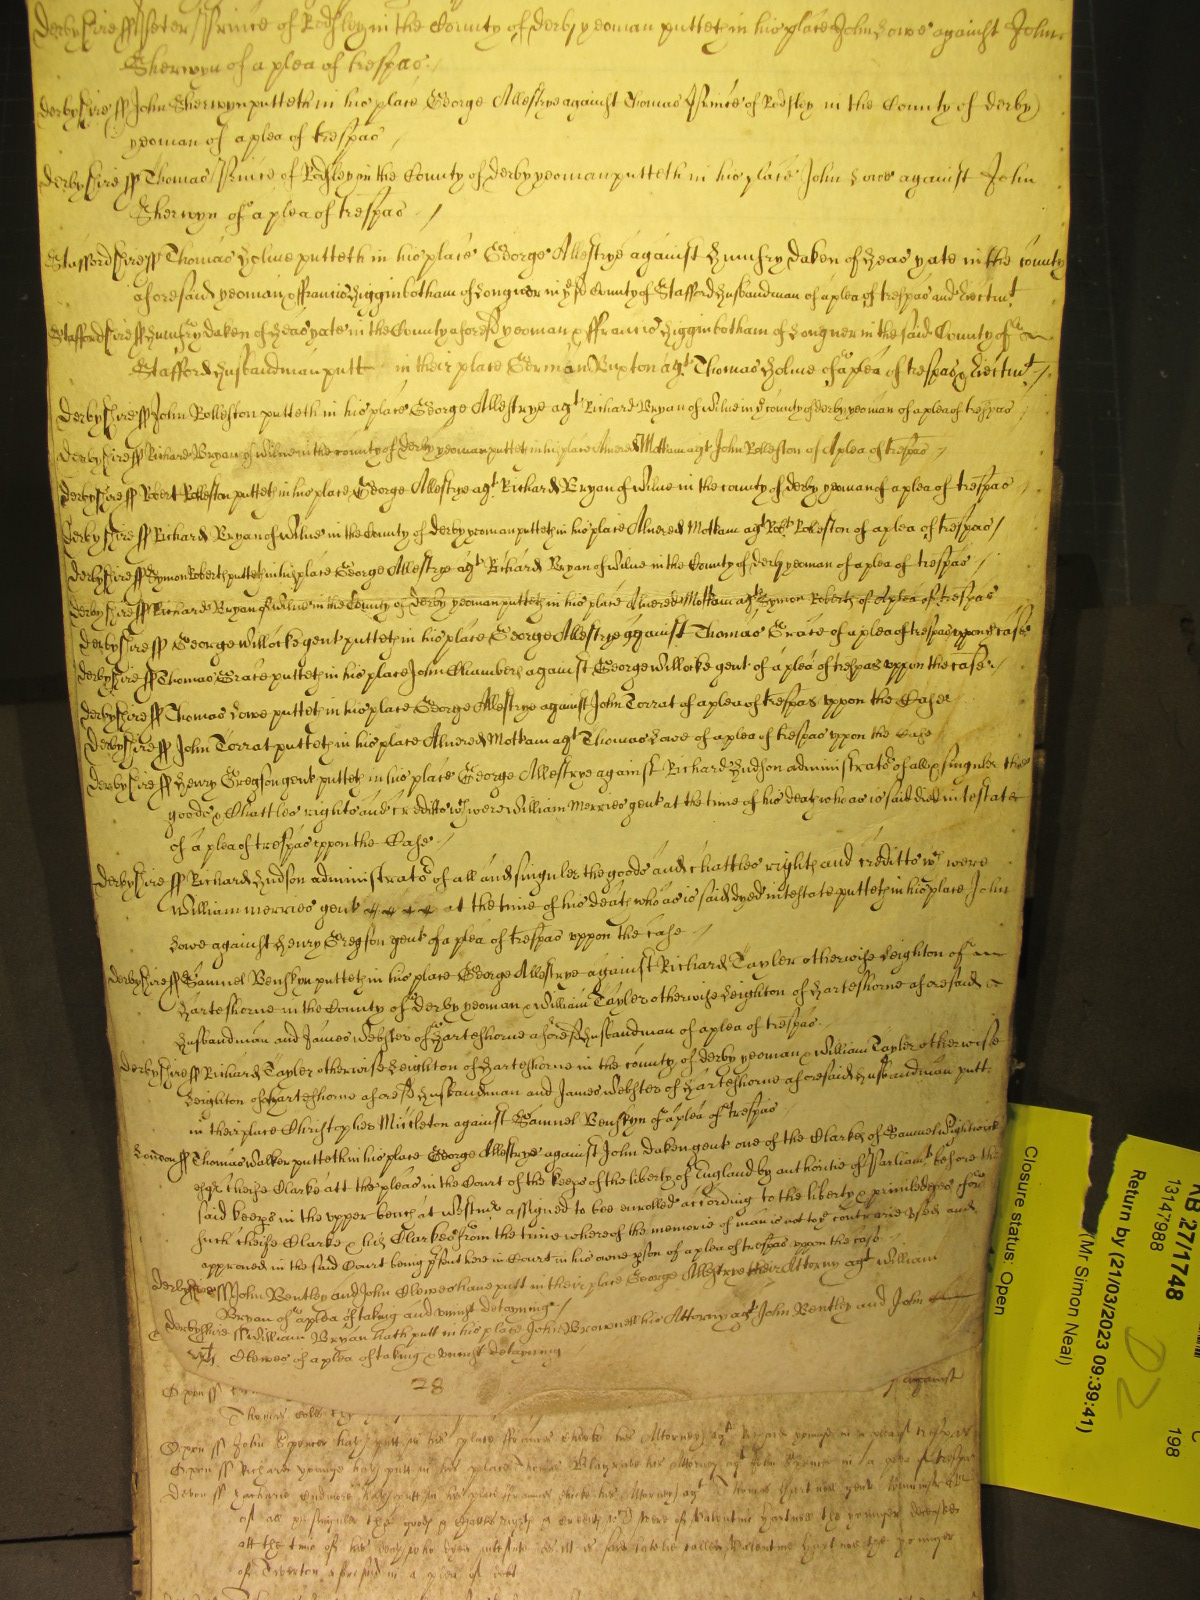 Derbyshire ss Peter Prince of Rodsley in the County of Derby yeoman putteth in his place John Lowe against John
Sherwyn of a plea of trespas
Derbyshire ss John Sherwyn putteth in his place George Allestrye against Thomas Prince of Rodsley in the County of Derby
yeoman of a plea of trespas
Derbyshire ss Thomas Prince of Rodsley in the County of Derby yeoman putteth in his place John Lowe against John
Sherwyn of a plea of trespas
Staffordshire ss Thomas Holme putteth in his place George Allestrye against Humfry Daken of yate in the County
aforesaid yeoman & ffrancis Higginbotham of Longnor in ye sd County of Stafford husbandman of a plea of trespas and Eiectmt
Staffordshire ss Humfry Daken of yate in the County aforesd yeoman & ffrancis Higginbotham of Longner in the said County of
Stafford husbandman putt in their place German Buxton agt Thomas Holme of a plea of trespas & Eiectmt
Derbyshire ss John Rolleston putteth in his place George Allestrye agt Richard Bryan of Wilne in ye County of Derby yeoman of a plea of trespas
Derbyshire ss Richard Bryan of Wilne in the County of Derby yeoman putteth in his place Alnered Mottam agt John Rolleston of a plea of trespas
Derbyshire ss Robert Rolleston putteth in his place George Allestrye agt Richard Bryan of Wilne in the County of Derby yeoman of a plea of trespas
Derbyshire ss Richard Bryan of Wilne in the County of Derby yeoman putteth in his place Alnered Mottam agt Robt Rolleston of a plea of trespas
Derbyshire ss Symon Roberts putteth in his place George Allestrye agt Richard Bryan of Wilne in the County of Derby yeoman of a plea of trespas
Derbyshire ss Richard Bryan of Wilne in the County of Derby yeoman putteth in his place Alnered Mottam agt Symon Roberts of a plea of trespas
Derbyshire ss George Willocke gent putteth in his place George Allestrye against Thomas Grace of a plea of trespas uppon ye case
Derbyshire ss Thomas Grace putteth in his place John Chambers against George Willocke gent of a plea of trespas uppon the case
Derbyshire ss Thomas Lowe putteth in his place George Allestrye against John Torrat of a plea of trespas uppon the Case
Derbyshire ss John Torrat putteth in his place Alnered Mottam agt Thomas Lowe of a plea of trespas uppon the Case
Derbyshire ss Henry Gregson gent putteth in his place George Allestrye against Richard Hudson administrator of all & singuler the
goods & Chattles rights and creditts wch were William Merries gent at the time of his death who as is said died intestate
of a plea of trespas uppon the Case
Derbyshire ss Richard Hudson administrator of all and singuler the goods and chattles rights and creditts wch were
William Merries gent at the time of his death who as is said dyed intestate putteth in his place John
Lowe against Henry Gregson gent of a plea of trespas uppon the case
Derbyshire ss Samuel Benskyn putteth in his place George Allestrye against Richard Tayler otherwise Leighton of
Harteshorne in the County of Derby yeoman & William Tayler otherwise Leighton of Harteshorne aforesaid
husbandman and James Webster of Harteshorne aforesd husbandman of a plea of trespas
Derbyshire ss Richard Tayler otherwise Leighton of Harteshorne in the county of Derby yeoman & William Tayler otherwise
Leighton of Harteshorne aforesd husbandman and James Webster of Harteshorne aforesaid husbandman putt
in their place Christopher Midleton against Samuel Benskyn of a plea of trespas
London ss Thomas Walker putteth in his place George Allestrye against John Daken gent one of the Clarkes of Samuel Wightwick
esqr cheife Clarke att the pleas in the Court of the keeps of the liberty of England by authoritie of Parliamt before the
said keeps in the upper bench at Westmr assigned to bee enrolled according to the liberty & priviledges for
such cheife Clarke & his Clarkes from the time whereof the memorie of man is not to ye contrarie used and
approved in the said Court being psent here in Court in his owne pson of a plea of trespas uppon the case
Derbyshire ss John Bentley and John Clewes have putt in their place George Allestrye their Attorny agt William
Bryan of a plea of taking and uniust detayning
Derbyshire ss William Bryan hath putt in his place John Browne his Attorny agt John Bentley and John
Clewes of a plea of taking & uniust detayning
28
Oxon ss against
Thomas
Oxon ss John Spencer hath putt in his place ffrancis his Attorney agt Richard younge in a plea of trespas
Oxon ss Richard younge hath putt in his place Thomas his Attorney agt John Spencer in a plea of trespas
Devon ss Zacharie hath putt in his place ffrancis his Attorney agt Thomas gent Administr
of all & singuler the goods & Chattles rights & creditts wch were of Valentine the younger deceased
att the time of his death who dyed intestate as itt is said called Valentine the younger
of Tiverton aforesaid in a plea of debt
KB 27/1748
13147988
198
Return by (21/03/2023 09:39:41)
D2
(Mr Simon Neal)
Closure status: Open